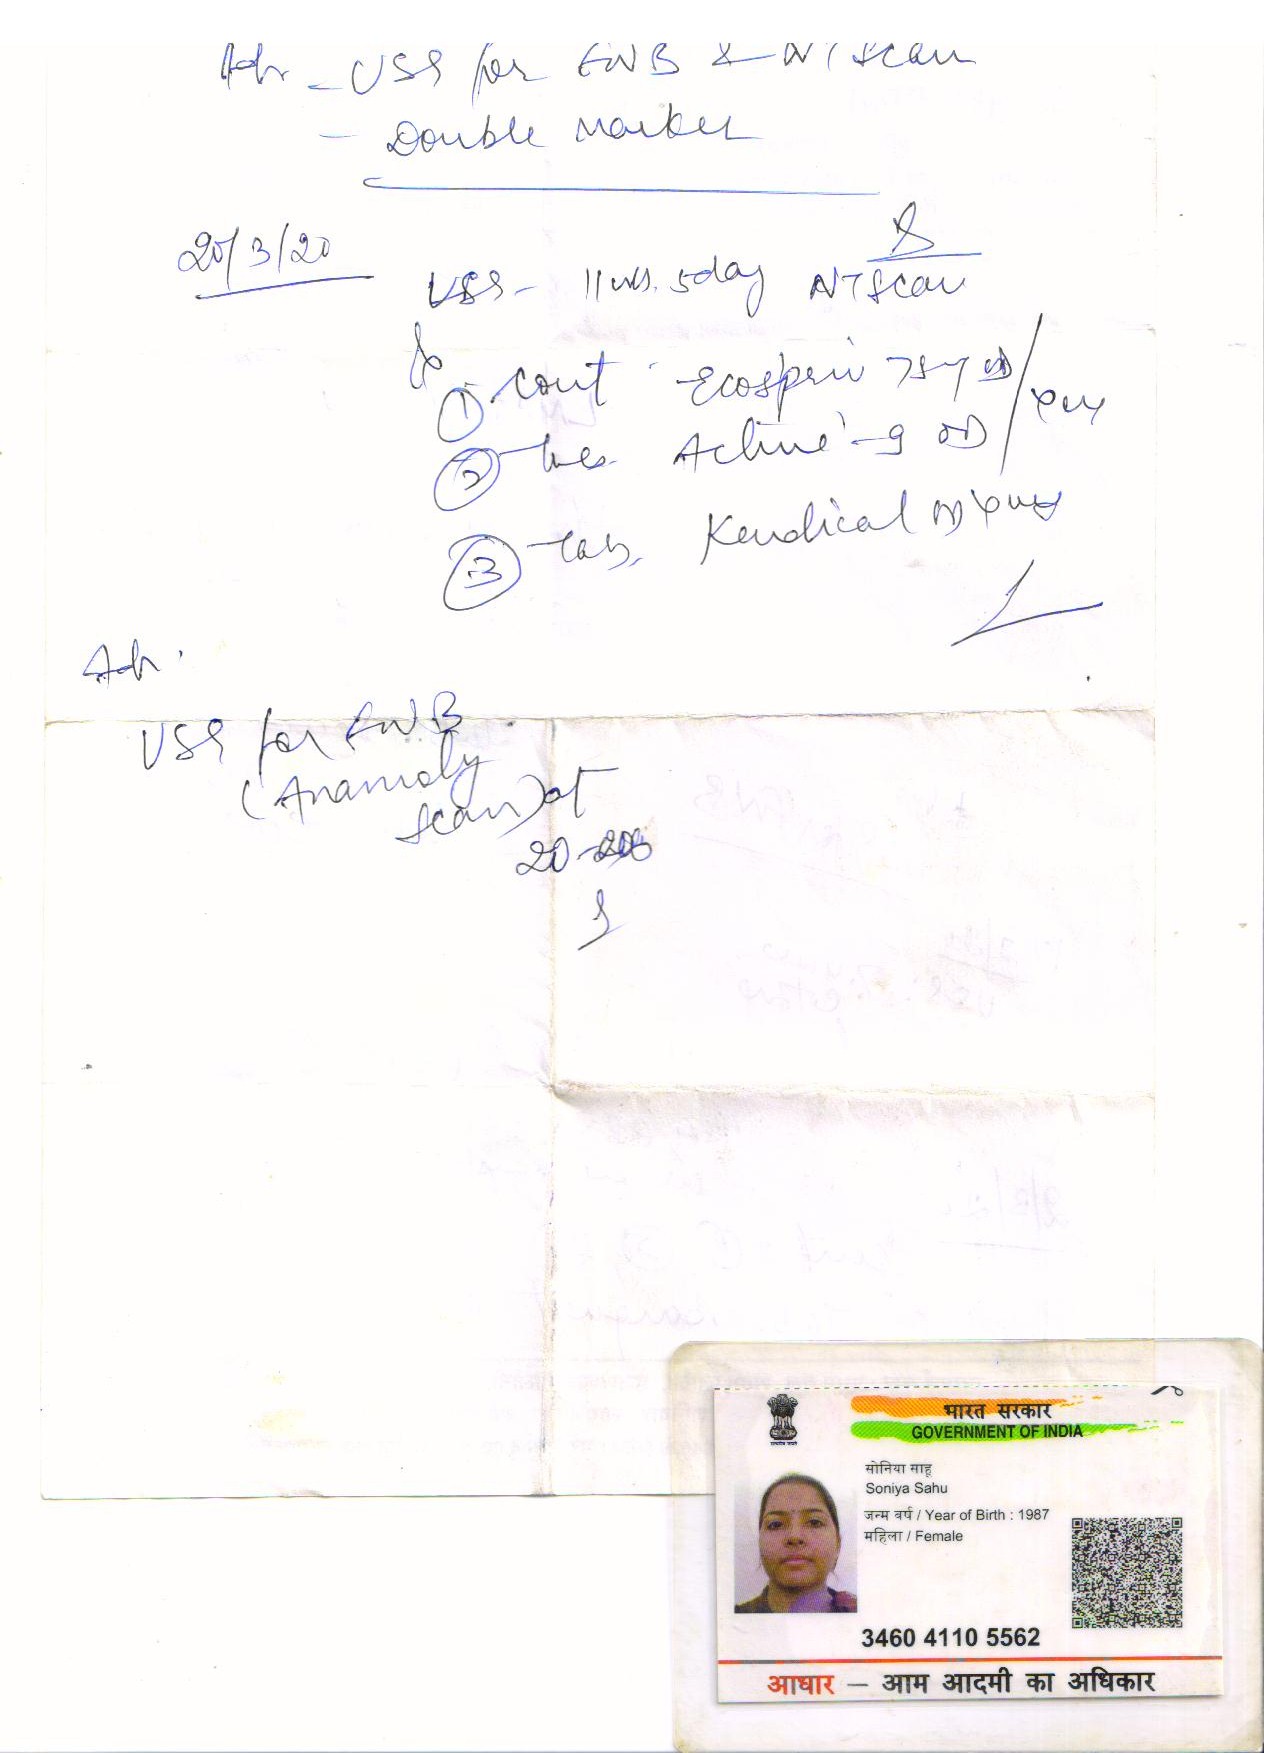 Adv - USG for FWB & NT Scan
- Double Marker
20/3/20
USG - 11 wks. 5 day NT Scan
① Cont Ecosprin 75mg OD
② Active-9 OD
③ Tab. Kendical
Adv.
USG for FWB
(Anamoly
Scan) at
20
भारत सरकार
GOVERNMENT OF INDIA
सोनिया साहू
Soniya Sahu
जन्म वर्ष / Year of Birth : 1987
महिला / Female
3460 4110 5562
आधार – आम आदमी का अधिकार